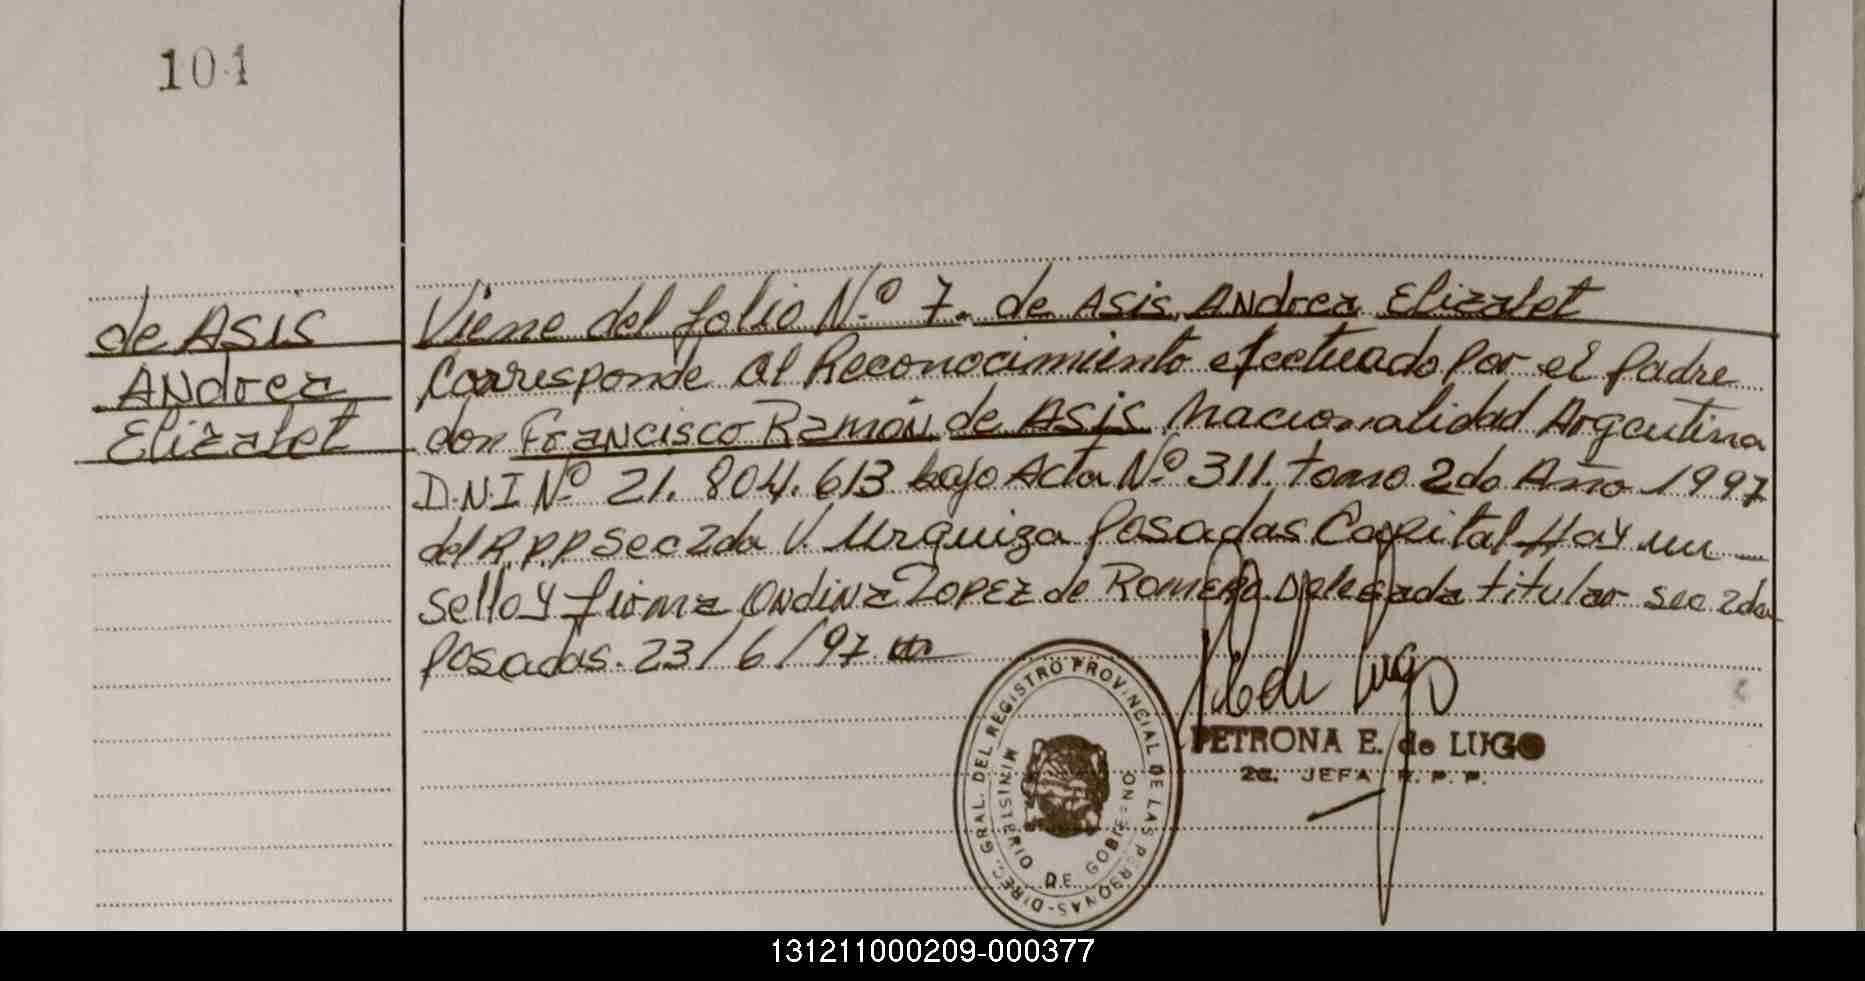 101
de ASIS
ANdrea
Elizabet
Viene del folio N.º 7. de ASIS, ANdrea Elizabet
Corresponde al Reconocimiento efectuado por el padre
don FRANCISCO RAMÓN de ASIS Nacionalidad Argentina
D.N.I Nº 21.804.613 bajo Acta Nº 311. tomo 2do Año 1997
del R.P.P Sec 2da V. Urquiza Posadas Capital Hay un
sello y firma ONDINA LOPEZ de ROMERO Delegada titular sec 2da
Posadas. 23/6/97
de Lugo
PETRONA E. de LUGO
2a. JEFA R. P. P.
DIREC. GRAL. DEL REGISTRO PROVINCIAL DE LAS PERSONAS-
MINISTERIO DE GOBIERNO
131211000209-000377